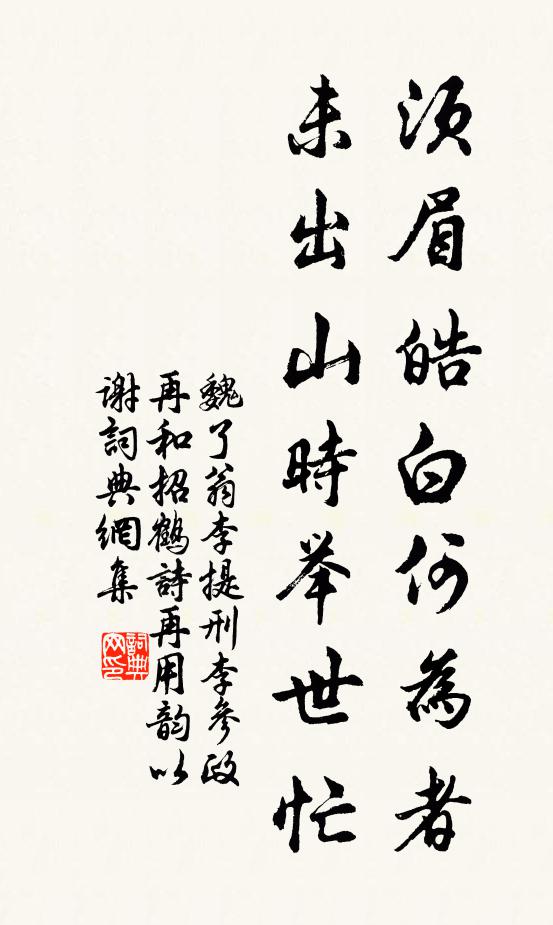 须眉皓白何為者
未出山時举世忙
魏了翁李提刑李參政
再和招鶴詩再用韵以
谢詞典網集
詞典
网印